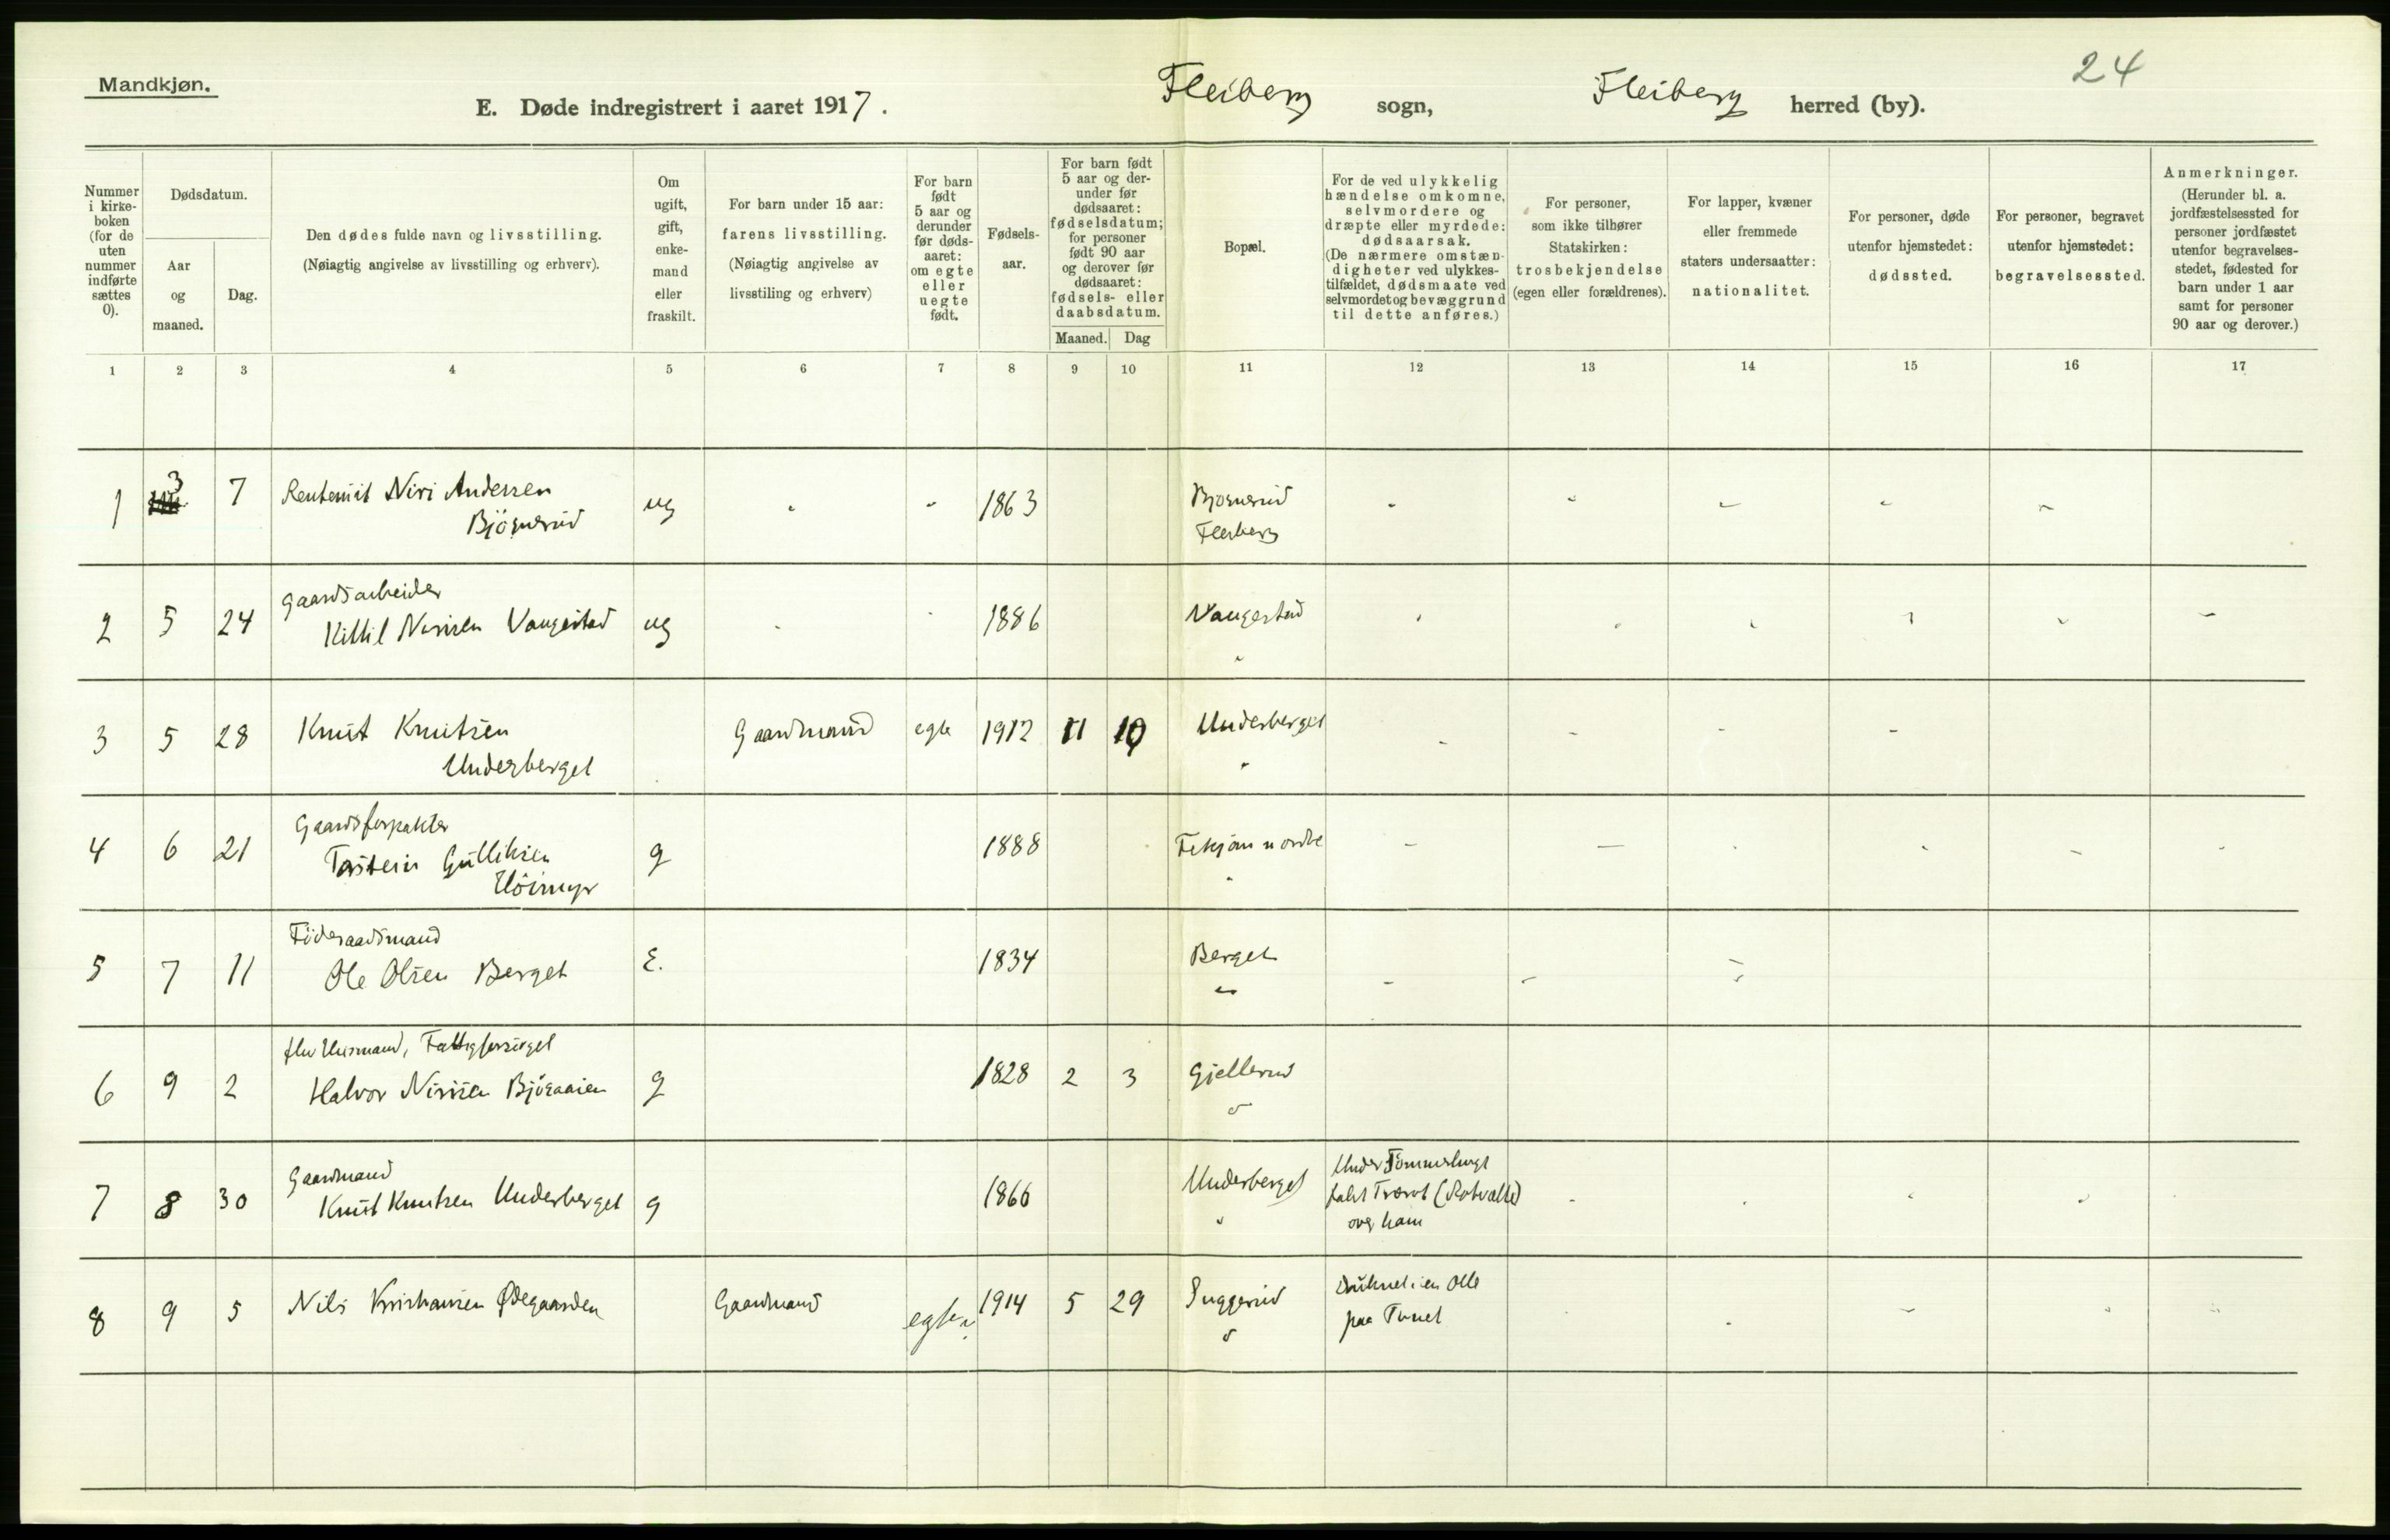 24
Mandkjøn.
E. Døde indregistrert i aaret 1917. Flesberg sogn, Flesberg herred (by).
Nummer i kirke-boken (for de uten nummer indførte sættes 0).
Dødsdatum.
Aar og maaned.
Dag.
Den dødes fulde navn og livsstilling.
(Nøiagtig angivelse av livsstilling og erhverv).
Om ugift, gift, enke-mand eller fraskilt.
For barn under 15 aar:
farens livsstilling.
(Nøiagtig angivelse av livsstiling og erhverv)
For barn født 5 aar og derunder før døds-aaret: om egte eller uegte født.
Fødsels-aar.
For barn født 5 aar og der-under før dødsaaret: fødselsdatum; for personer født 90 aar og derover før dødsaaret: fødsels- eller daabsdatum.
Maaned. Dag
Bopæl.
For de ved ulykkelig hændelse omkomne, selvmordere og dræpte eller myrdede: dødsaarsak. (De nærmere omstæn-digheter ved ulykkes-tilfældet, dødsmaate ved selvmordet og bevæggrund til dette anføres.)
For personer, som ikke tilhører Statskirken: trosbekjendelse (egen eller forældrenes).
For lapper, kvæner eller fremmede staters undersaatter: nationalitet.
For personer, døde utenfor hjemstedet: dødssted.
For personer, begravet utenfor hjemstedet: begravelsessted.
Anmerkninger.
(Herunder bl. a. jordfæstelsessted for personer jordfæstet utenfor begravelses-stedet, fødested for barn under 1 aar samt for personer 90 aar og derover.)
1 2 3 4 5 6 7 8 9 10 11 12 13 14 15 16 17
1 3 7 Niri Andersen Bjørnerud ug - - 1863 Bjørnerud Flesberg - - - - -
2 5 24 Gaardsarbeider Kittil Nirisen Vangestad ug - - 1886 Vangestad " - - - - - -
3 5 28 Knut Knutsen Underberget Gaardmand egte 1912 11 10 Underberget " - - - -
4 6 21 Gaardsforpakter Torstein Gulliksen Høimyr g 1888 Fekjan nordre " - - - - - -
5 7 11 Føderaadsmand Ole Olsen Berget E. 1834 Berget " - - -
6 9 2 fhv Husmand, Fattigforsørget Halvor Nirisen Bjøraaien g 1828 2 3 Gjellerud "
7 8 30 Gaardmand Knut Knutsen Underberget g 1866 Underberget " Under Tømmerhugst faldt Trærot (Rotvælte) over ham - - - -
8 9 5 Nils Kristiansen Ødegaarden Gaardmand egte 1914 5 29 Suggerud " Druknet i en Olle paa Tunet - - - - -